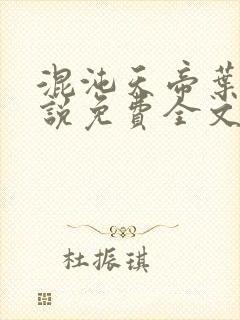 混沌天帝葉
說免費全文
杜振琪